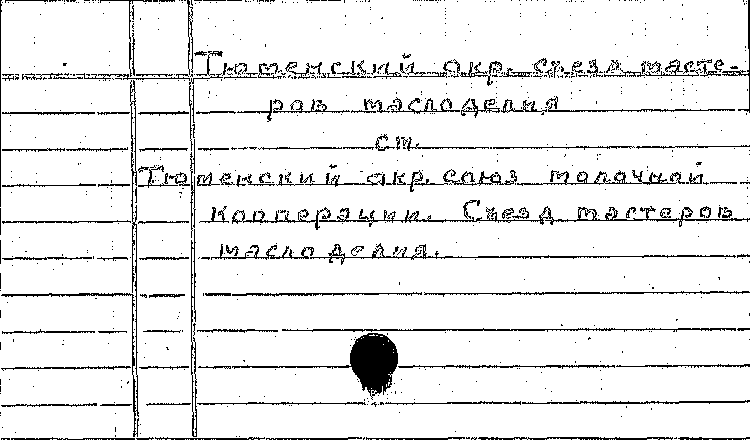 Тюменский окр. съезд масте-
ров маслоделия
см.
Тюменский окр. союз молочной
кооперации. Съезд мастеров
маслоделия.